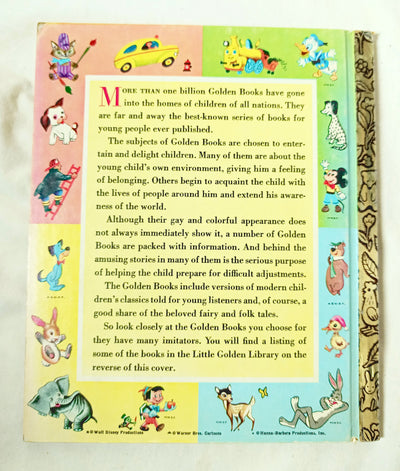 MORE THAN one billion Golden Books have gone
into the homes of children of all nations. They
are far and away the best-known series of books for
young people ever published.
The subjects of Golden Books are chosen to enter-
tain and delight children. Many of them are about the
young child's own environment, giving him a feeling
of belonging. Others begin to acquaint the child with
the lives of people around him and extend his aware-
ness of the world.
Although their gay and colorful appearance does
not always immediately show it, a number of Golden
Books are packed with information. And behind the
amusing stories in many of them is the serious purpose
of helping the child prepare for difficult adjustments.
The Golden Books include versions of modern chil-
dren's classics told for young listeners and, of course, a
good share of the beloved fairy and folk tales.
So look closely at the Golden Books you choose for
they have many imitators. You will find a listing of
some of the books in the Little Golden Library on the
reverse of this cover.
©Walt Disney Productions ©Warner Bros. Cartoons ©Hanna-Barbera Productions, Inc.